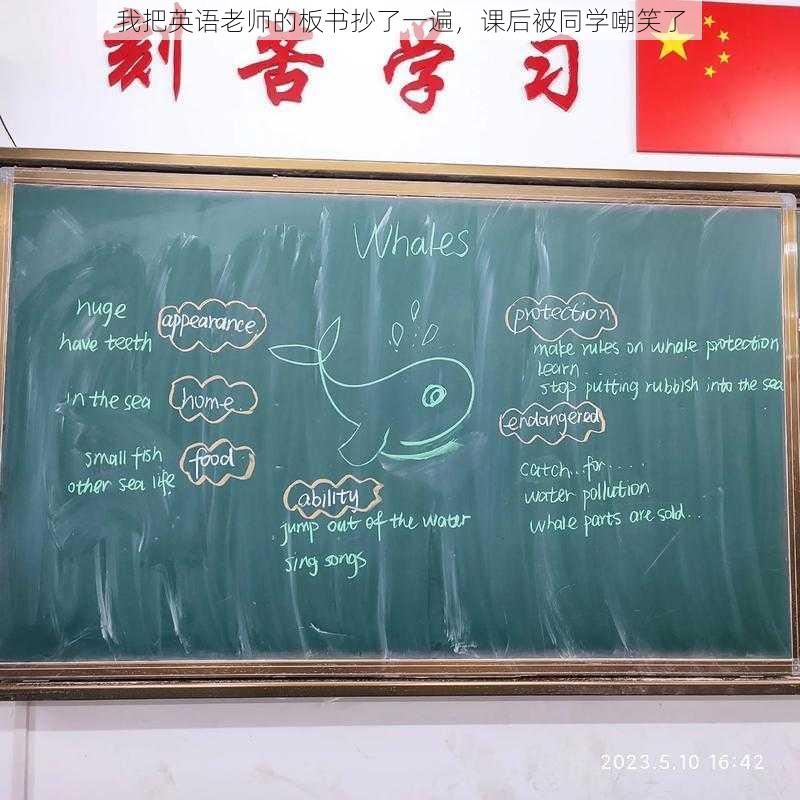 我把英语老师的板书抄了一遍，课后被同学嘲笑了
刻苦学习
Whales
huge
have teeth
appearance
in the sea
home
small fish
other sea life
food
ability
jump out of the water
sing songs
protection
make rules on whale protection
Learn ....
stop putting rubbish into the sea
endangered
catch..for....
water pollution
whale parts are sold...
2023.5.10 16:42